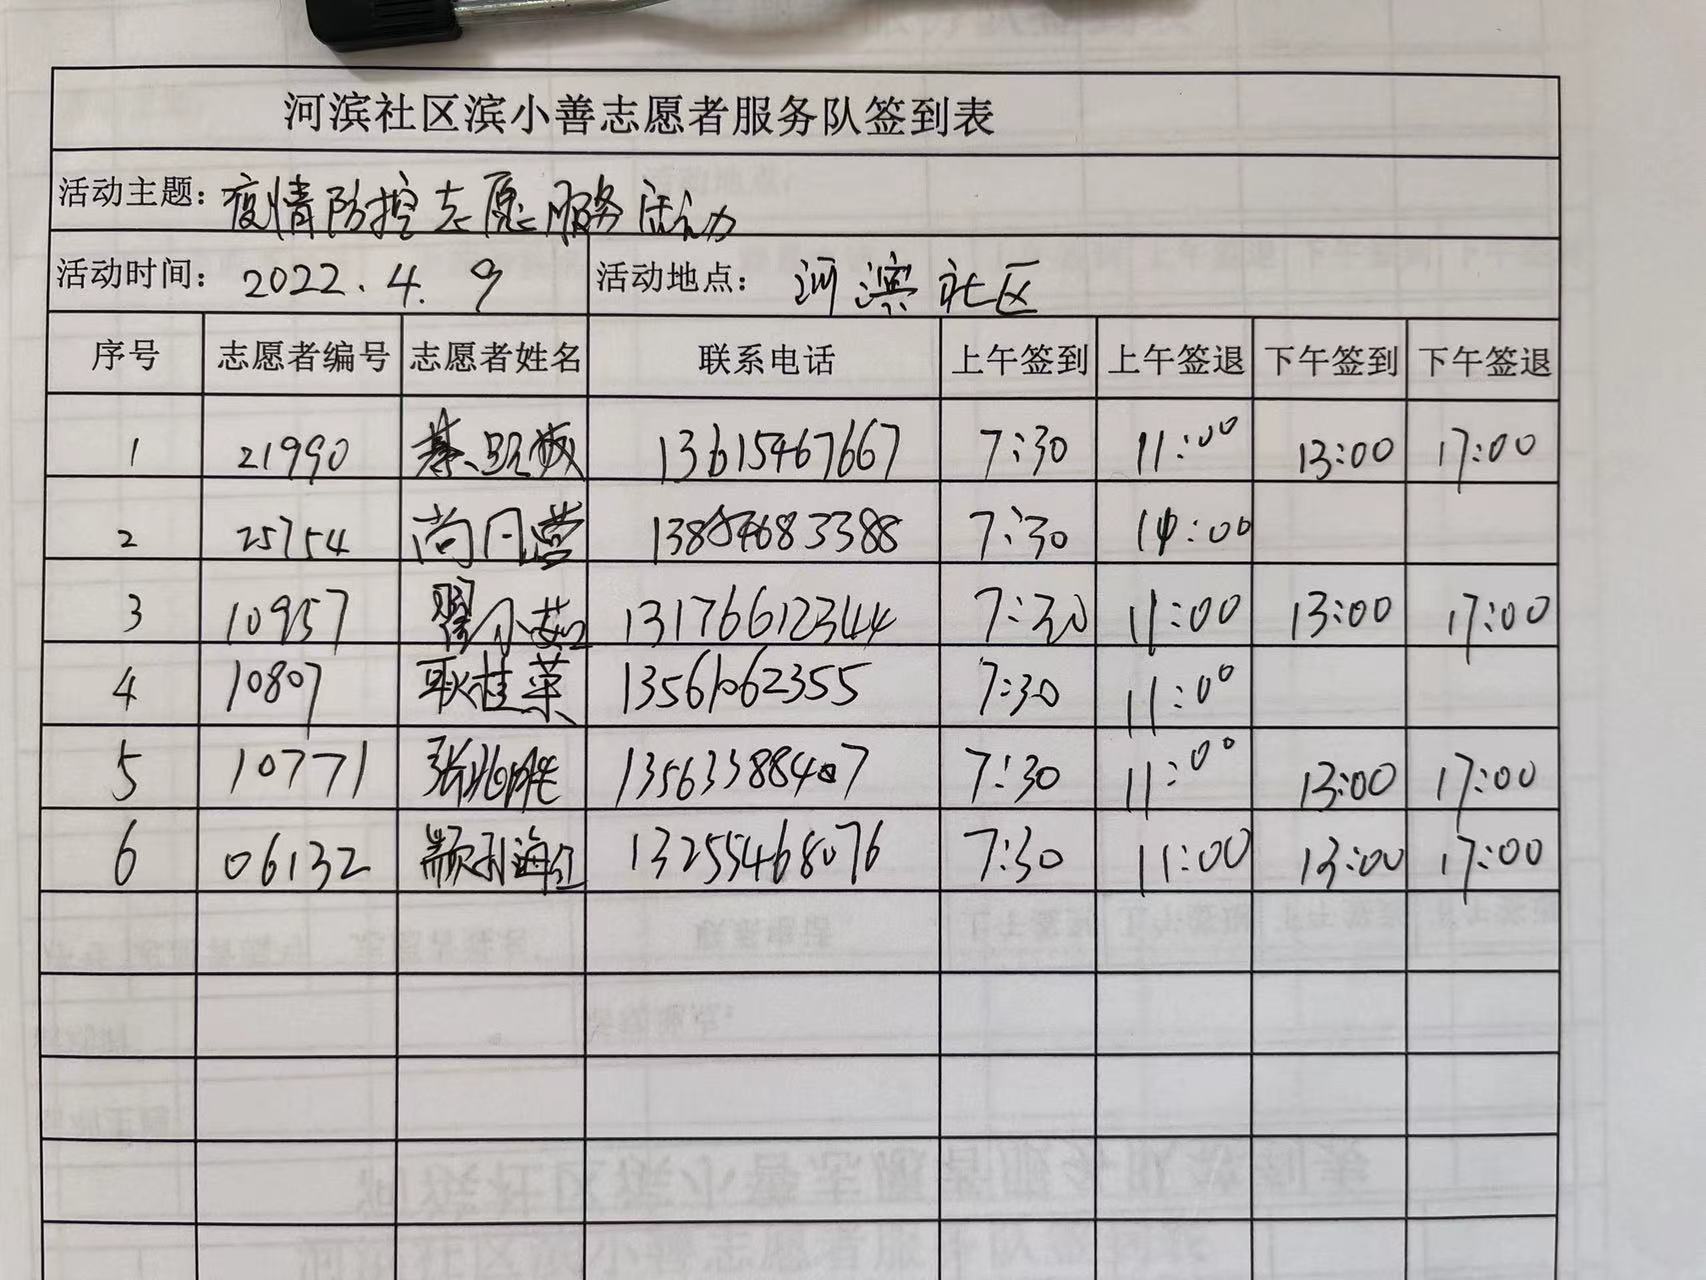 河滨社区滨小善志愿者服务队签到表
活动主题：疫情防控志愿服务活动
活动时间：2022.4.9 活动地点：河滨社区
序号 志愿者编号 志愿者姓名 联系电话 上午签到 上午签退 下午签到 下午签退
1 21990 13615467667 7:30 11:00 13:00 17:00
2 25754 尚月营 7:30 :00
3 10957 翟介茹 13176612344 7:30 11:00 13:00 17:00
4 10807 耿桂菜 13561062355 7:30 11:00
5 10771 张兆胜 13563388407 7:30 11:00 13:00 17:00
6 06132 颛孙海红 13255468076 7:30 11:00 13:00 17:00